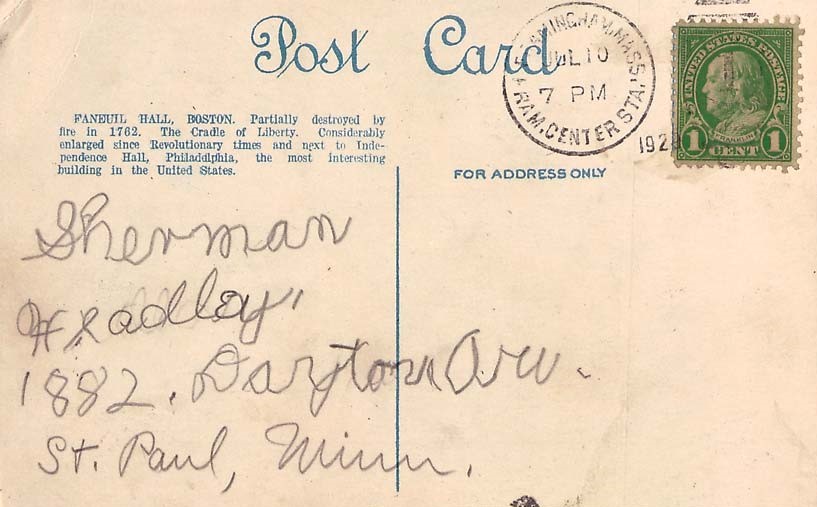 Post Card
FANEUIL HALL, BOSTON. Partially destroyed by
fire in 1762. The Cradle of Liberty. Considerably
enlarged since Revolutionary times and next to Inde-
pendence Hall, Philadelphia, the most interesting
building in the United States.
FOR ADDRESS ONLY
FRAMINGHAM, MASS.
FRAM. CENTER STA.
JUL 10
7 PM
UNITED STATES POSTAGE
FRANKLIN
1 CENT 1
Sherman
1882. Dayton Ave.
St. Paul, Minn.